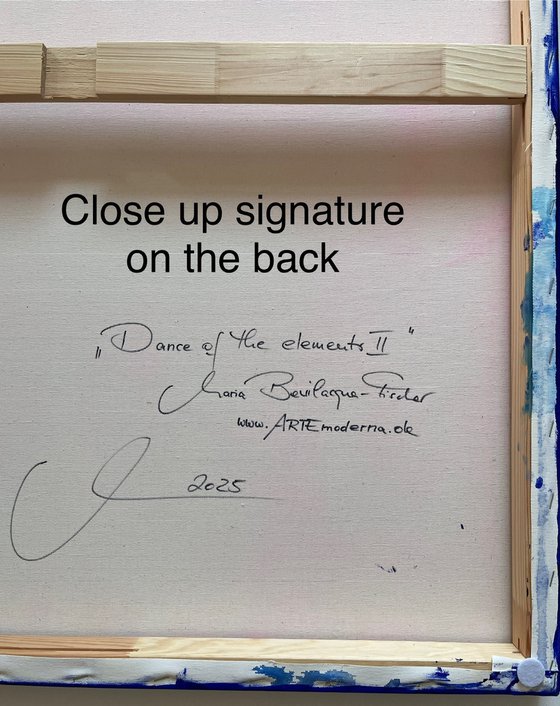 Close up signature
on the back
„Dance of the elements II"
Maria Bevilacqua-Fischer
www.ARTEmoderna.de
2025